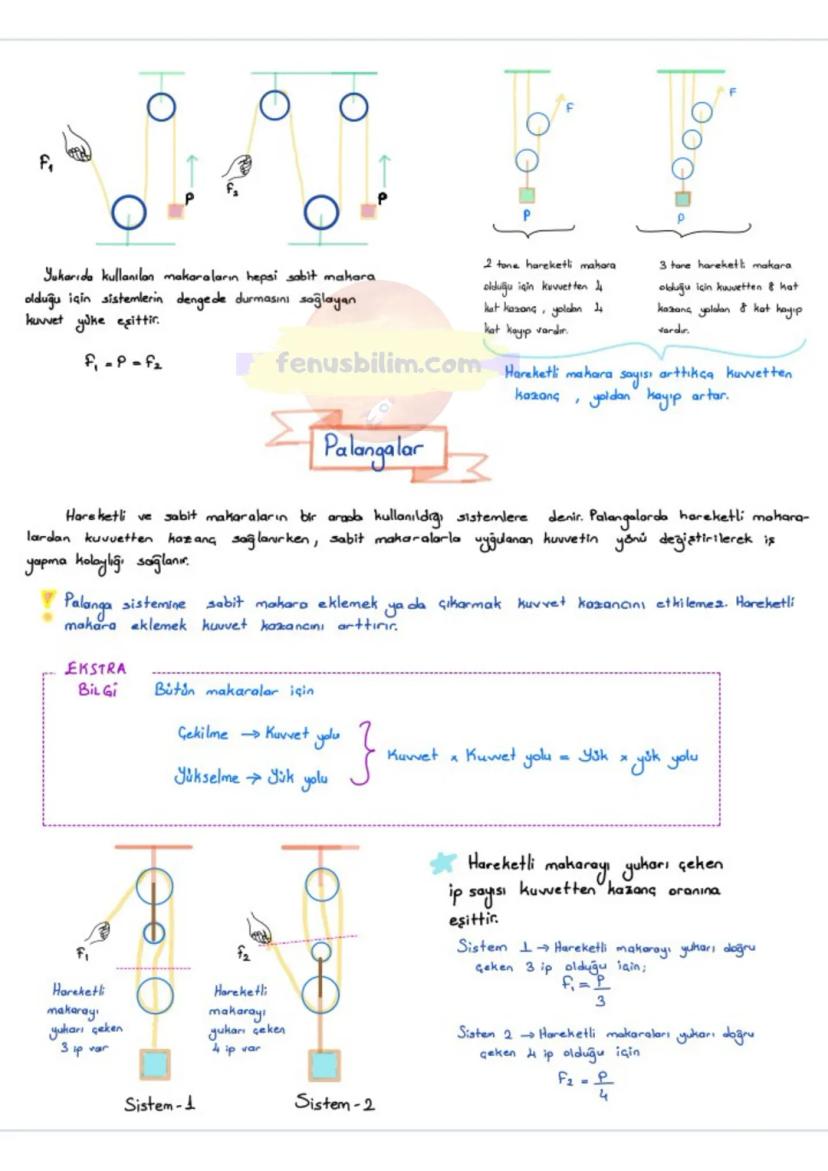 F₁
P
F₂
P
F
P
F
P
Yukarıda kullanılan makaraların hepsi sabit makara
olduğu için sistemlerin dengede durmasını sağlayan
kuvvet yüke eşittir.
F₁ = P = F₂
2 tane hareketli makara
olduğu için kuvvetten 4
kat kazanç, yoldan 4
kat kayıp vardır.
3 tane hareketli makara
olduğu için kuvvetten 8 kat
kazanç yoldan 8 kat kayıp
vardır.
Hareketli makara sayısı arttıkça kuvvetten
kazanç, yoldan kayıp artar.
fenusbilim.com
Palangalar
Hareketli ve sabit makaraların bir arada kullanıldığı sistemlere denir. Palangalarda hareketli makara-
lardan kuvvetten kazanç sağlanırken, sabit makaralarla uygulanan kuvvetin yönü değiştirilerek iş
yapma kolaylığı sağlanır.
! Palanga sistemine sabit makara eklemek ya da çıkarmak kuvvet kazancını etkilemez. Hareketli
makara eklemek kuvvet kazancını arttırır.
EKSTRA
BİLGİ
Bütün makaralar için
Çekilme → Kuvvet yolu
Yükselme → Yük yolu
Kuvvet x Kuvvet yolu = Yük x yük yolu
F₁
Hareketli
makarayı
yukarı çeken
3 ip var
Sistem-1
F₂
Hareketli
makarayı
yukarı çeken
4 ip var
Sistem-2
Hareketli makarayı yukarı çeken
ip sayısı kuvvetten kazanç oranına
eşittir.
Sistem 1 → Hareketli makarayı yukarı doğru
çeken 3 ip olduğu için;
F₁ = P
3
Sistem 2 → Hareketli makaraları yukarı doğru
çeken 4 ip olduğu için
F₂ = P
4